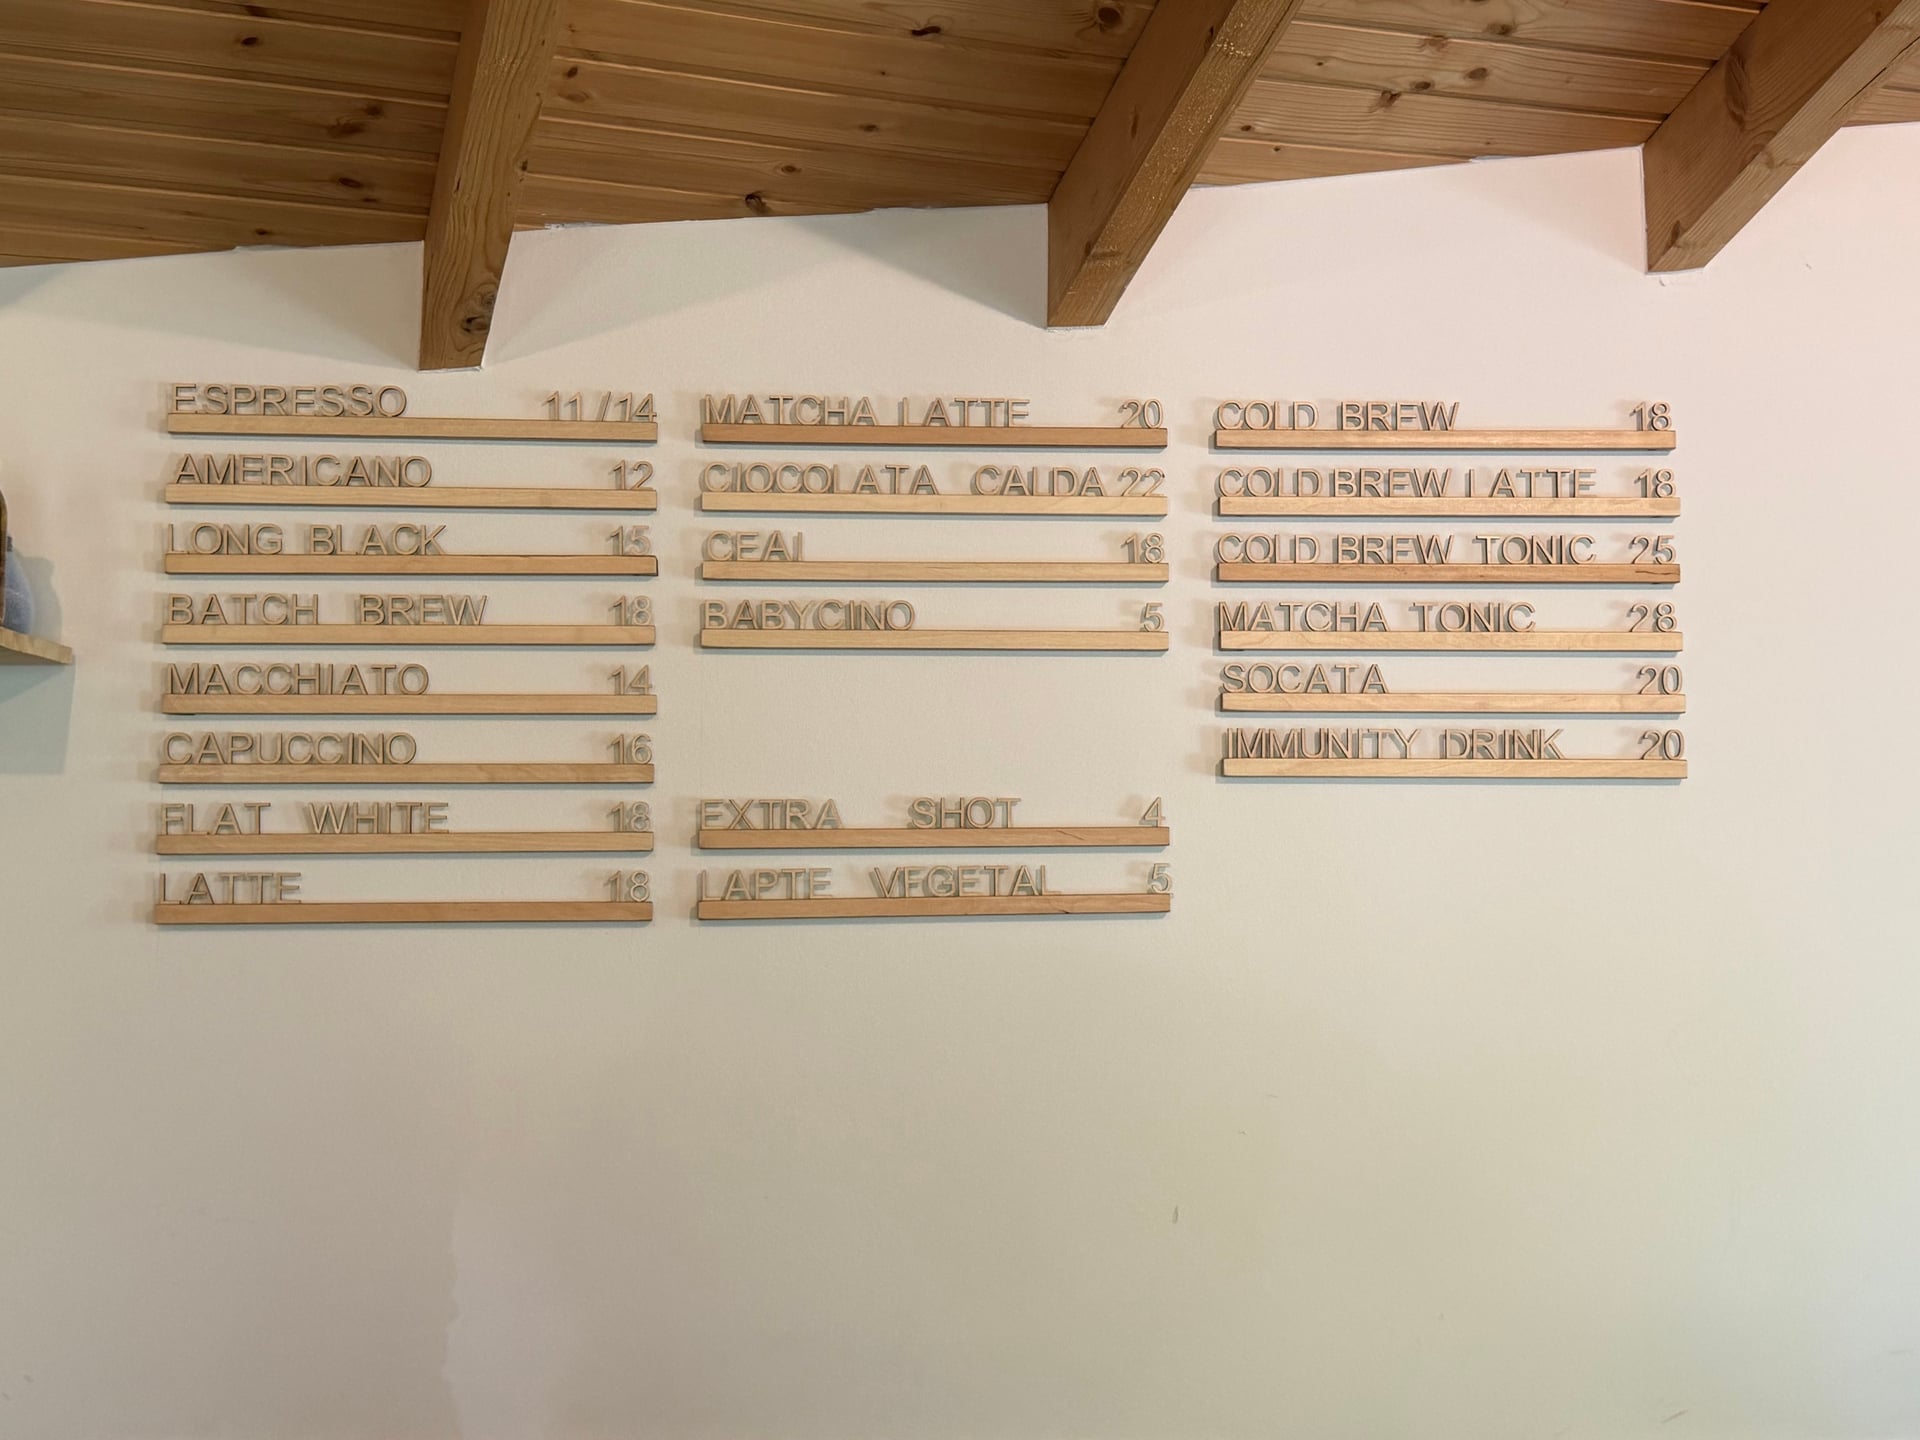 ESPRESSO 11/14
AMERICANO 12
LONG BLACK 15
BATCH BREW 18
MACCHIATO 14
CAPUCCINO 16
FLAT WHITE 18
LATTE 18
MATCHA LATTE 20
CIOCOLATA CALDA 22
CEAI 18
BABYCINO 5
EXTRA SHOT 4
LAPTE VEGETAL 5
COLD BREW 18
COLD BREW LATTE 18
COLD BREW TONIC 25
MATCHA TONIC 28
SOCATA 20
IMMUNITY DRINK 20